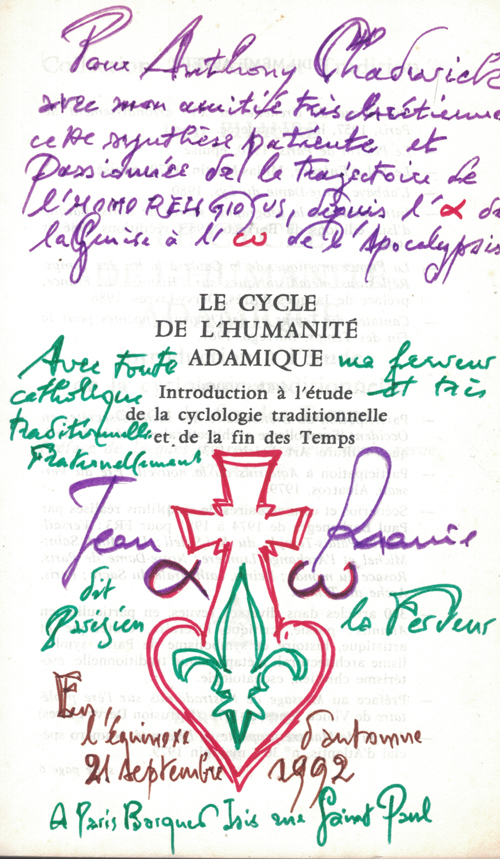 Pour Anthony Chadwick
avec mon amitié très chrétienne
cette synthèse patiente et
passionnée de la trajectoire de
l'HOMO RELIGIOSUS, depuis l'α de
la Genèse à l'ω de l'Apocalypsis
LE CYCLE
DE L'HUMANITÉ
ADAMIQUE
Avec toute ma ferveur
catholique et très
traditionnelle
Fraternellement
Introduction à l'étude
de la cyclologie traditionnelle
et de la fin des Temps
Jean Phaure
α ω
dit
Parisien la Ferveur
En
l'équinoxe d'automne
21 septembre 1992
A Paris Isis rue Saint Paul